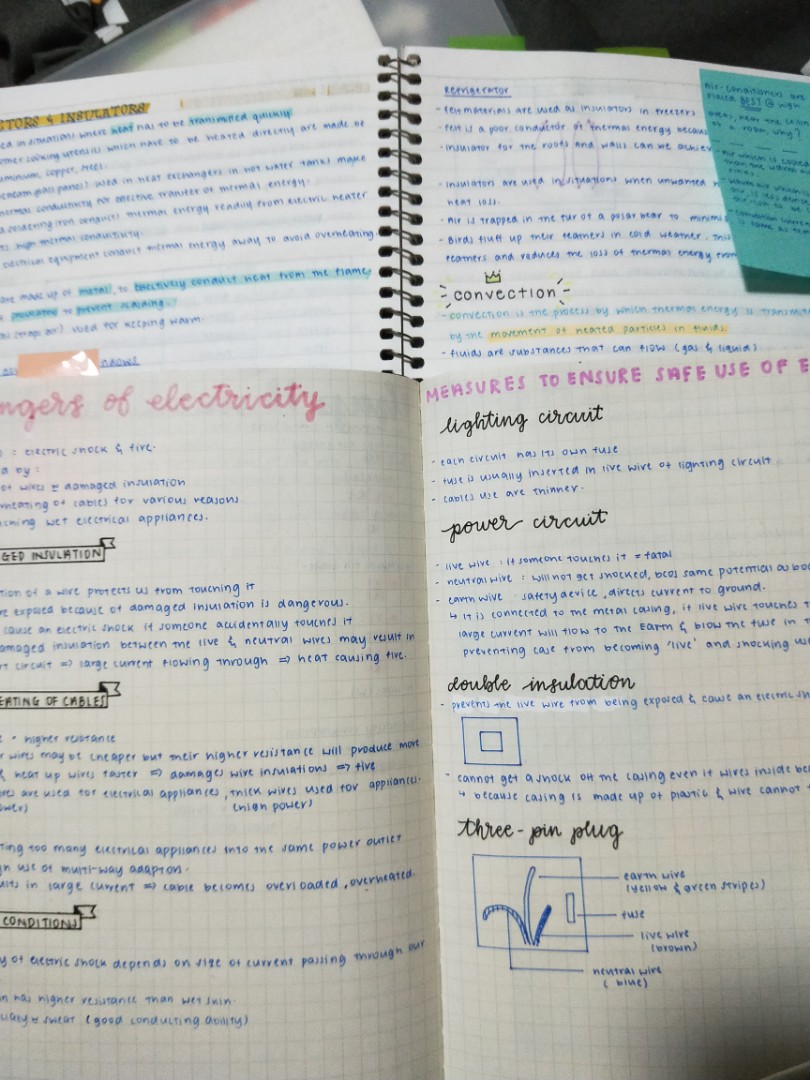 & INSULATORS
ed in situations where heat has to be transmitted quickly
cooking utensils which have to be heated directly are made of
aluminum, copper, steel.
used in heat exchangers in hot water tanks make
thermal conductivity for effective transfer of thermal energy.
soldering iron conducts thermal energy readily from electric heater
its high thermal conductivity.
electrical equipment conduct thermal energy away to avoid overheating.
are made up of metal, to effectively conduct heat from the flames
insulated to prevent scalding.
(traps air) used for keeping warm.
Refrigerator
- felt materials are used as insulators in freezers
- felt is a poor conductor of thermal energy becaus
- insulator for the roofs and walls can we achiev
- insulators are used in situations when unwanted
heat loss.
- Air is trapped in the fur of a polar bear to minimis
- Birds fluff up their feathers in cold weather. This
feathers and reduces the loss of thermal energy from
convection
- convection is the process by which thermal energy is transmit
by the movement of heated particles in fluids.
- fluids are substances that can flow (gas & liquid)
Air-conditioners are
placed BEST @ high
areas, near the
of a room, why?
ngers of electricity
: electric shock & fire.
by :
of wires ≅ damaged insulation
heating of cables for various reasons
ching wet electrical appliances.
GED INSULATION
tion of a wire protects us from touching it
re exposed because of damaged insulation is dangerous.
cause an electric shock if someone accidentally touches it
amaged insulation between the live & neutral wires may result in
rt circuit ⇒ large current flowing through ⇒ heat causing fire.
EATING OF CABLES
= higher resistance
r wires may be cheaper but their higher resistance will produce more
& heat up wires faster ⇒ damages wire insulations ⇒ fire
res are used for electrical appliances, thick wires used for appliances.
ower) (high power)
ting too many electrical appliances into the same power outlet
gh use of multi-way adaptor.
ults in large current ⇒ cable becomes overloaded, overheated.
CONDITIONS
y of electric shock depends on size of current passing through our
in has higher resistance than wet skin.
sweat (good conducting ability)
MEASURES TO ENSURE SAFE USE OF E
lighting circuit
- each circuit has its own fuse
- fuse is usually inserted in live wire of lighting circuit
- cables use are thinner.
power circuit
- live wire : if someone touches it = fatal
- neutral wire : will not get shocked, bcos same potential as bod
- earth wire : safety device, directs current to ground.
↳ it is connected to the metal casing, if live wire touches t
large current will flow to the Earth & blow the fuse in t
preventing case from becoming 'live' and shocking us
double insulation
- prevents the live wire from being exposed & cause an electric sh
- cannot get a shock off the casing even if wires inside be
↳ because casing is made up of plastic & wire cannot
three-pin plug
earth wire
(yellow & green stripes)
fuse
live wire
(brown)
neutral wire
( blue)